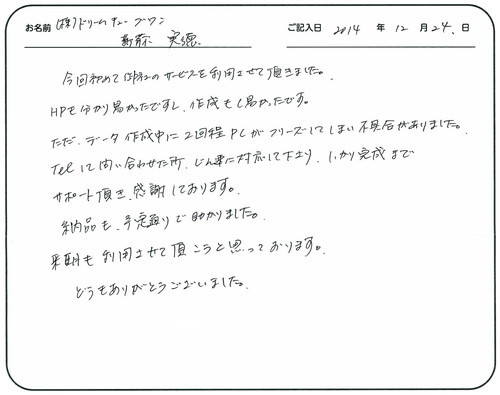 お名前 (株)ドリームキューブワン ご記入日 2014 年 12 月 24 日
今回初めて御社のサービスを利用させて頂きました。
HPも分かり易かったですし、作成もし易かったです。
ただ、データ作成中に2回程PCがフリーズしてしまい不具合がありました。
Telして問い合わせた所、しん摯に対応して下さり、しっかり完成まで
サポート頂き、感謝しております。
納品も、予定通りで助かりました。
来期も利用させて頂こうと思っております。
どうもありがとうございました。